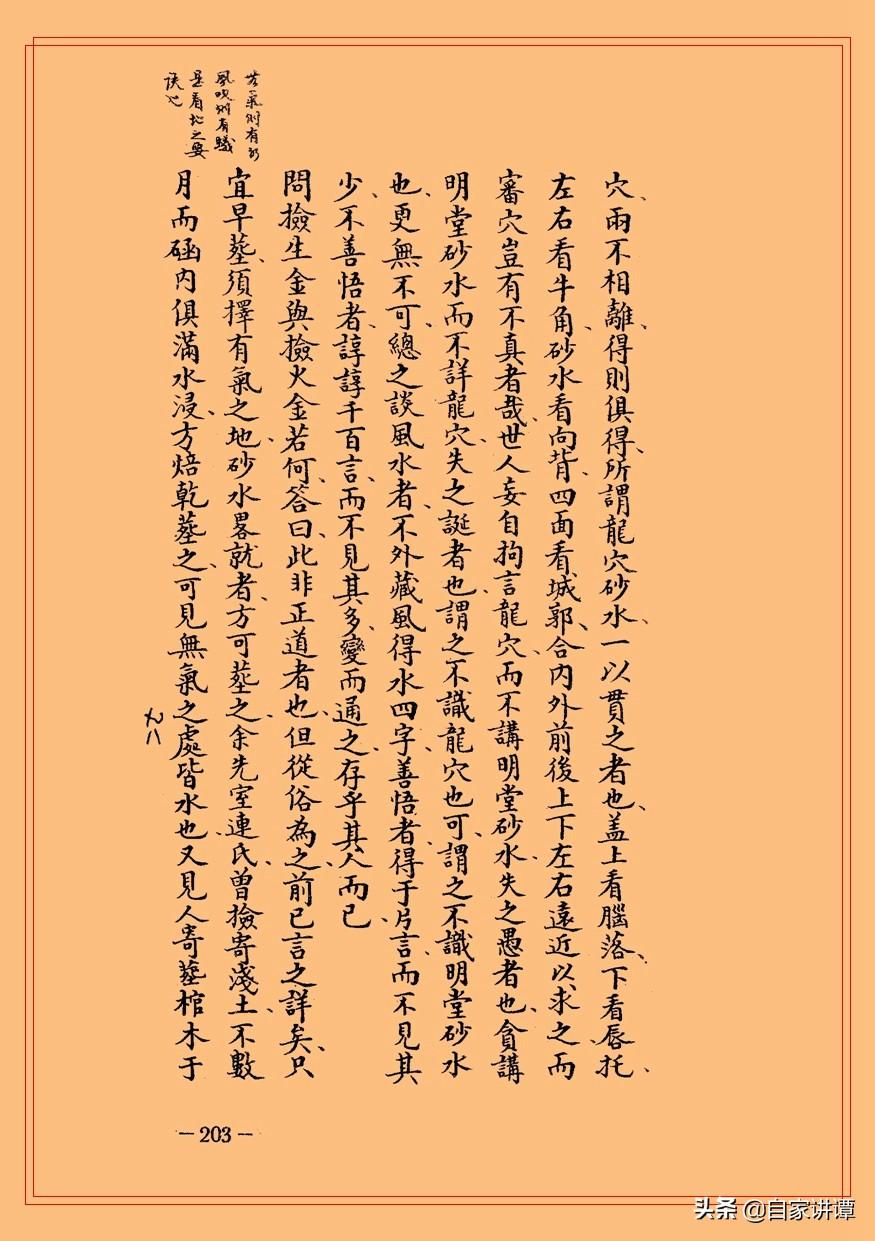 穴、雨不相離、得則俱得、所謂龍穴砂水、一以貫之者也、盖上看腦落、下看唇托、
左右看牛角、砂水看向背、四面看城郭、合內外前後上下左右遠近以求之、而
審穴豈有不真者哉、世人妄自拘言龍穴、而不講明堂砂水、失之愚者也、貪講
明堂砂水、而不詳龍穴、失之誕者也、謂之不識龍穴也可、謂之不識明堂砂水
也、更無不可、總之談風水者、不外藏風得水四字、善悟者、得于片言、而不見其
少、不善悟者、諄諄千百言、而不見其多、變而通之、存乎其人而已、
問撿生金與撿火金若何、答曰、此非正道者也、但從俗為之、前已言之詳矣、只
宜早塟、須擇有氣之地、砂水畧就者、方可塟之、余先室連氏、曾撿寄淺土、不數
月而𥑮內俱滿水浸、方焙乾塟之、可見無氣之處皆水也、又見人寄塟棺木于
氣則有
風吹則有蟻
是看地之要
訣也
九二
－203－
头条 @自家讲谭